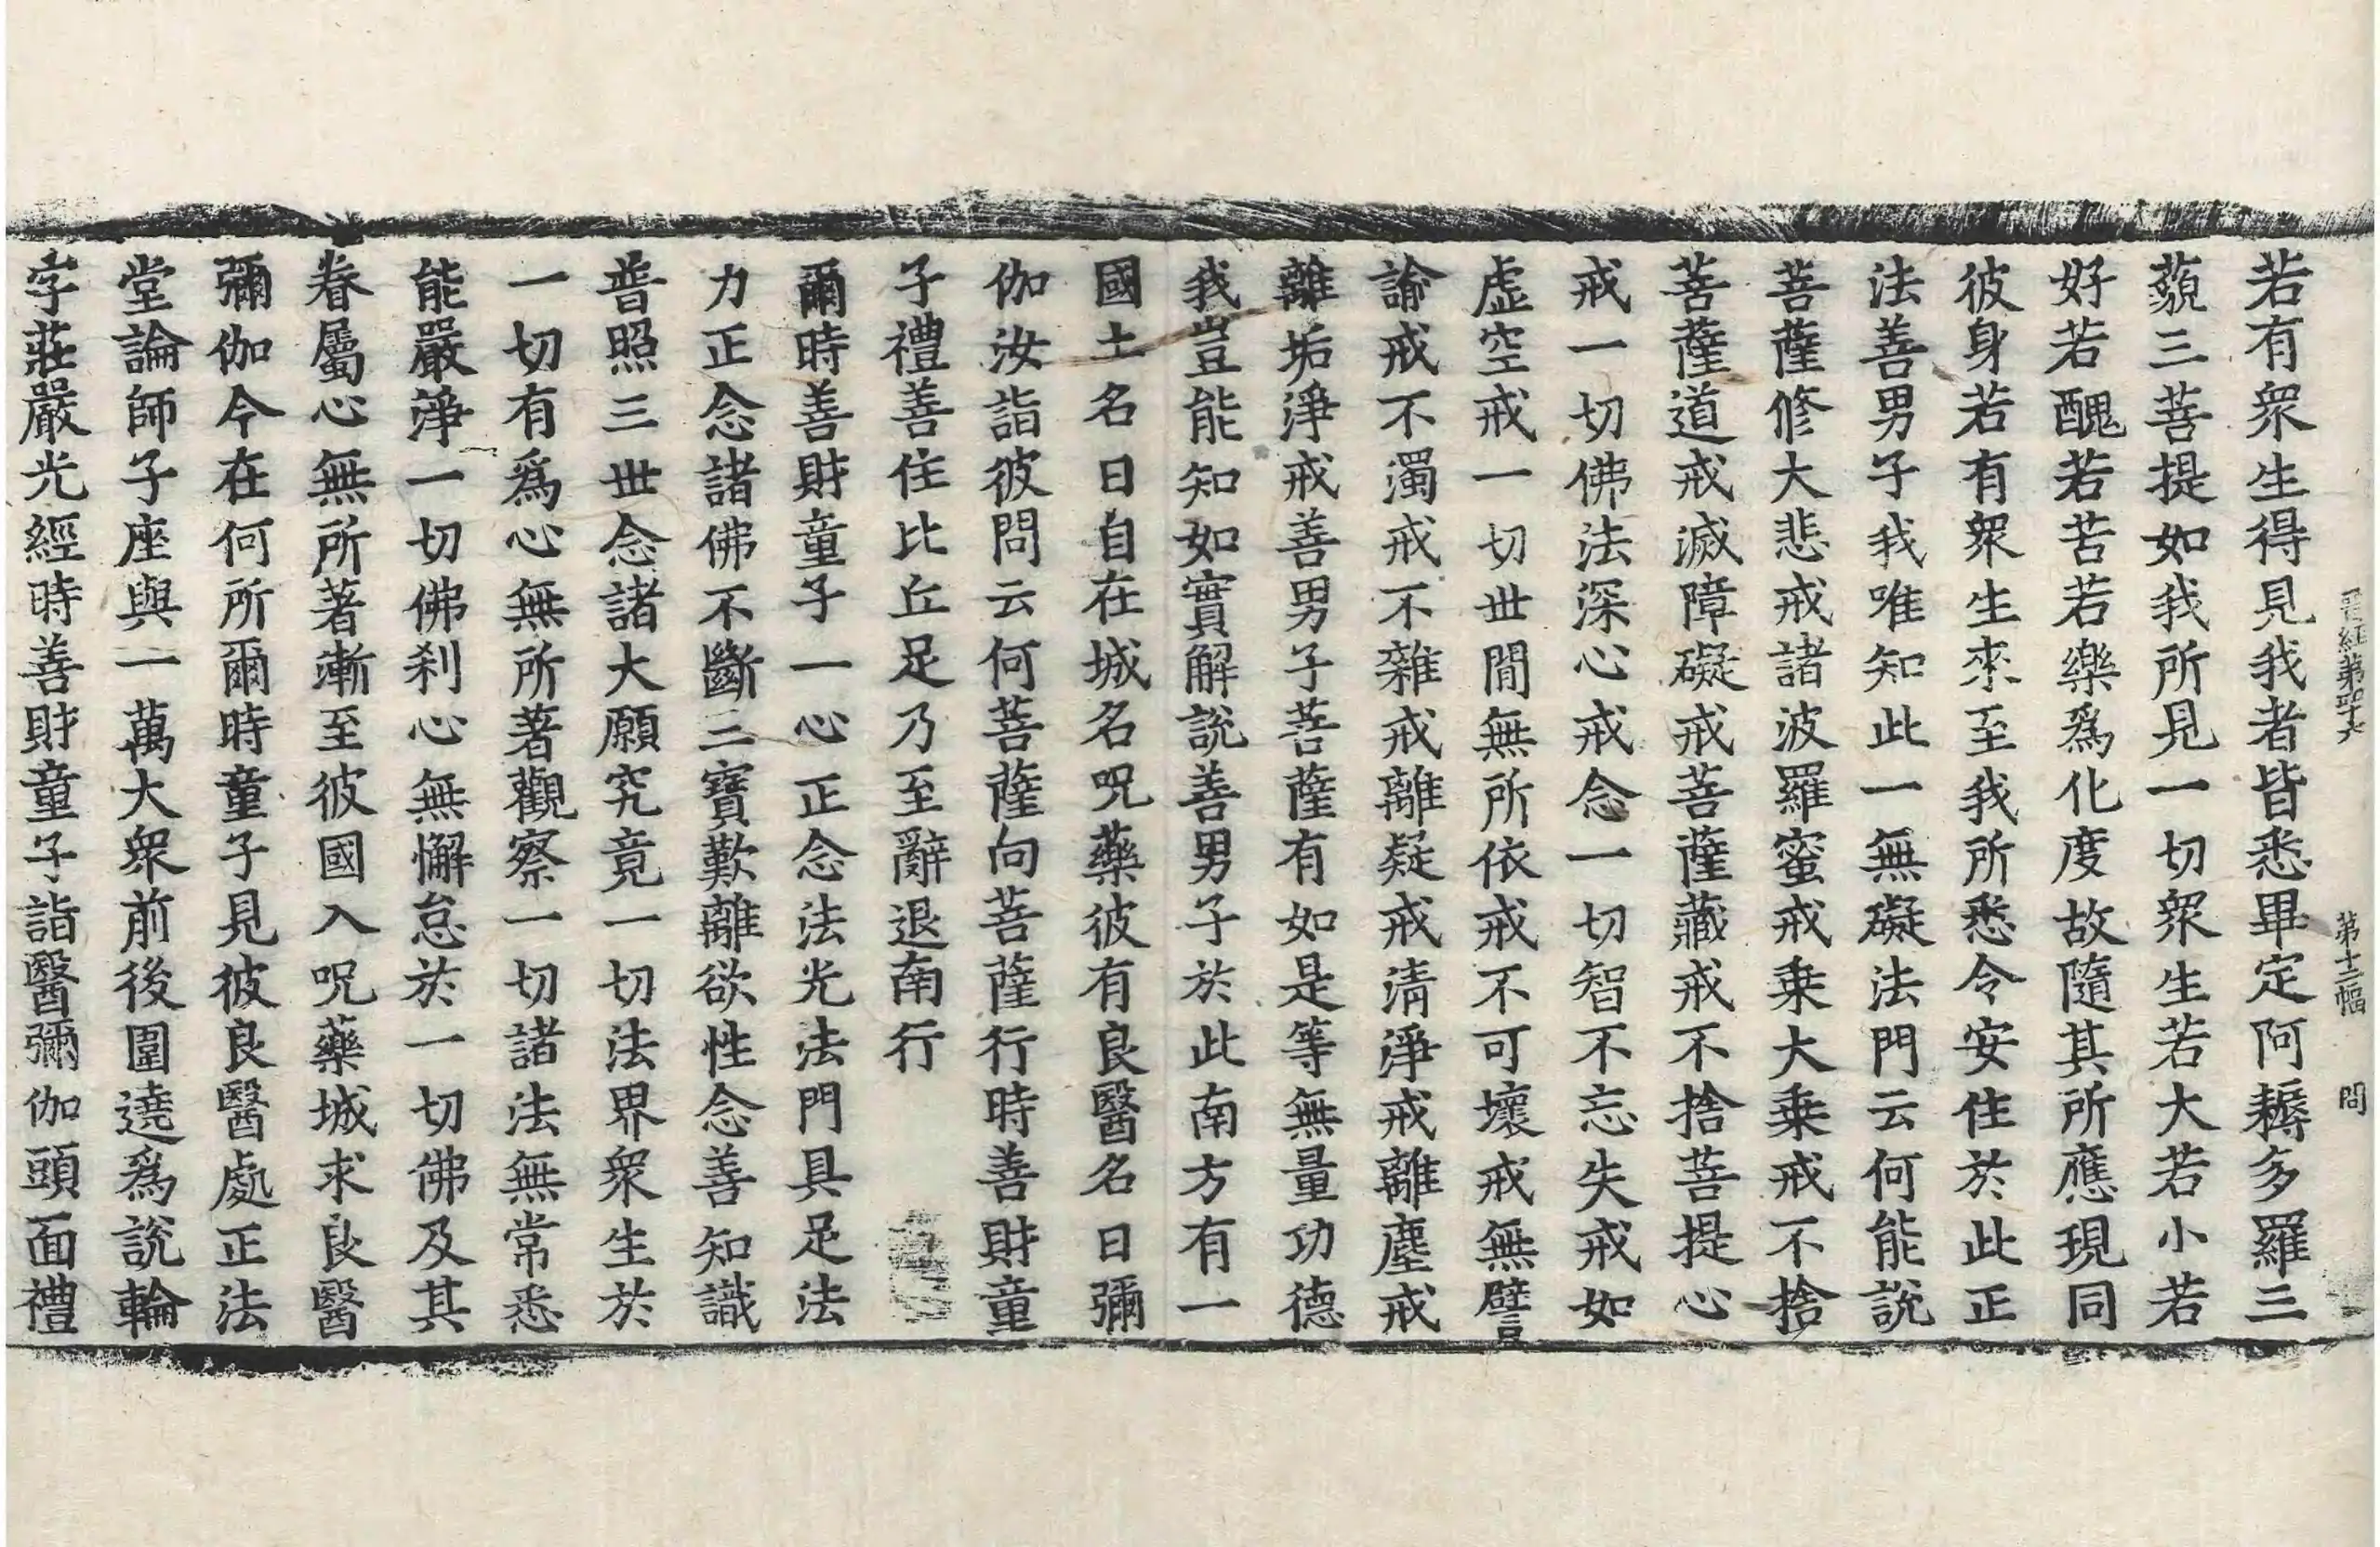 晋経第四十六 第十二幅 問
若有衆生得見我者皆悉畢定阿耨多羅三
藐三菩提如我所見一切衆生若大若小若
好若醜若苦若樂爲化度故隨其所應現同
彼身若有衆生來至我所悉令安住於此正
法善男子我唯知此一無礙法門云何能說
菩薩修大悲戒諸波羅蜜戒乗大乗戒不捨
菩薩道戒滅障礙戒菩薩藏戒不捨菩提心
戒一切佛法深心戒念一切智不忘失戒如
虛空戒一切世閒無所依戒不可壞戒無譬
諭戒不濁戒不雜戒離疑戒清淨戒離塵戒
離垢淨戒善男子菩薩有如是等無量功德
我豈能知如實解說善男子於此南方有一
國土名曰自在城名呪藥彼有良醫名曰彌
伽汝詣彼問云何菩薩向菩薩行時善財童
子禮善住比丘足乃至辭退南行
爾時善財童子一心正念法光法門具足法
力正念諸佛不斷三寶歎離欲性念善知識
普照三世念諸大願究竟一切法界衆生於
一切有爲心無所著觀察一切諸法無常悉
能嚴淨一切佛刹心無懈怠於一切佛及其
眷屬心無所著漸至彼國入呪藥城求良醫
彌伽今在何所爾時童子見彼良醫處正法
堂論師子座與一萬大衆前後圍遶爲說輪
字莊嚴光經時善財童子詣醫彌伽頭面禮